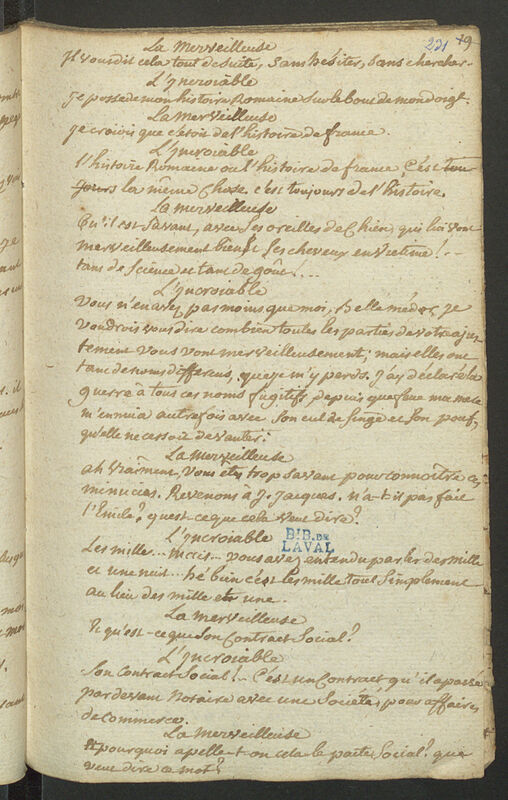 231 49
La Merveilleuse
Il vous dit cela tout de suite, sans hésiter, sans chercher.
L'Incroiable
Je possede mon histoire Romaine sur le bout de mon doigt.
La Merveilleuse
Je croiois que c'etoit de l'histoire de france.
L'Incroiable
l'histoire Romaine ou l'histoire de france, C'est tou-
jours la même Chose, c'est toujours de l'histoire.
La Merveilleuse
Qu'il est Savant, avec ses oreilles de Chien, qui lui vont
merveilleusement bien, et ses cheveux en victime!..
tant de Science et tant de goût!...
L'Incroiable
Vous n'en avez pas moins que moi, Belle médor, Je
voudrois vous dire combien toutes les parties de votre ajus
tement vous vont merveilleusement; mais elles ont
tant de noms differens, que je m'y perds. J'ay déclaré la
guerre à tous ces noms fugitifs, depuis que feue ma mere
m'ennuia autrefois avec son cul de Singe et son pouf,
qu'elle ne cessoit de vanter.
La Merveilleuse
ah vraiment, vous etes trop savant pour connoitre ces
minucies. Revenons à J. Jacques. n'a-t-il pas fait
l'Emile? qu'est-ce que cela veut dire?
L'Incroiable
BIB. DE
LAVAL
Les mille... mais... vous avez entendu parler des mille
et une nuit... hé bien c'est les mille tout simplement
au lieu des mille et une.
La Merveilleuse
Et qu'est-ce que son Contract Social?
L'Incroiable
Son Contract Social!.. C'est un Contract qu'il a passé
par devant Notaire avec une Societé, pour affaires
de Commerce.
La Merveilleuse
Et pourquoi apelle-t-on cela le pacte Social? que
veut dire ce mot?